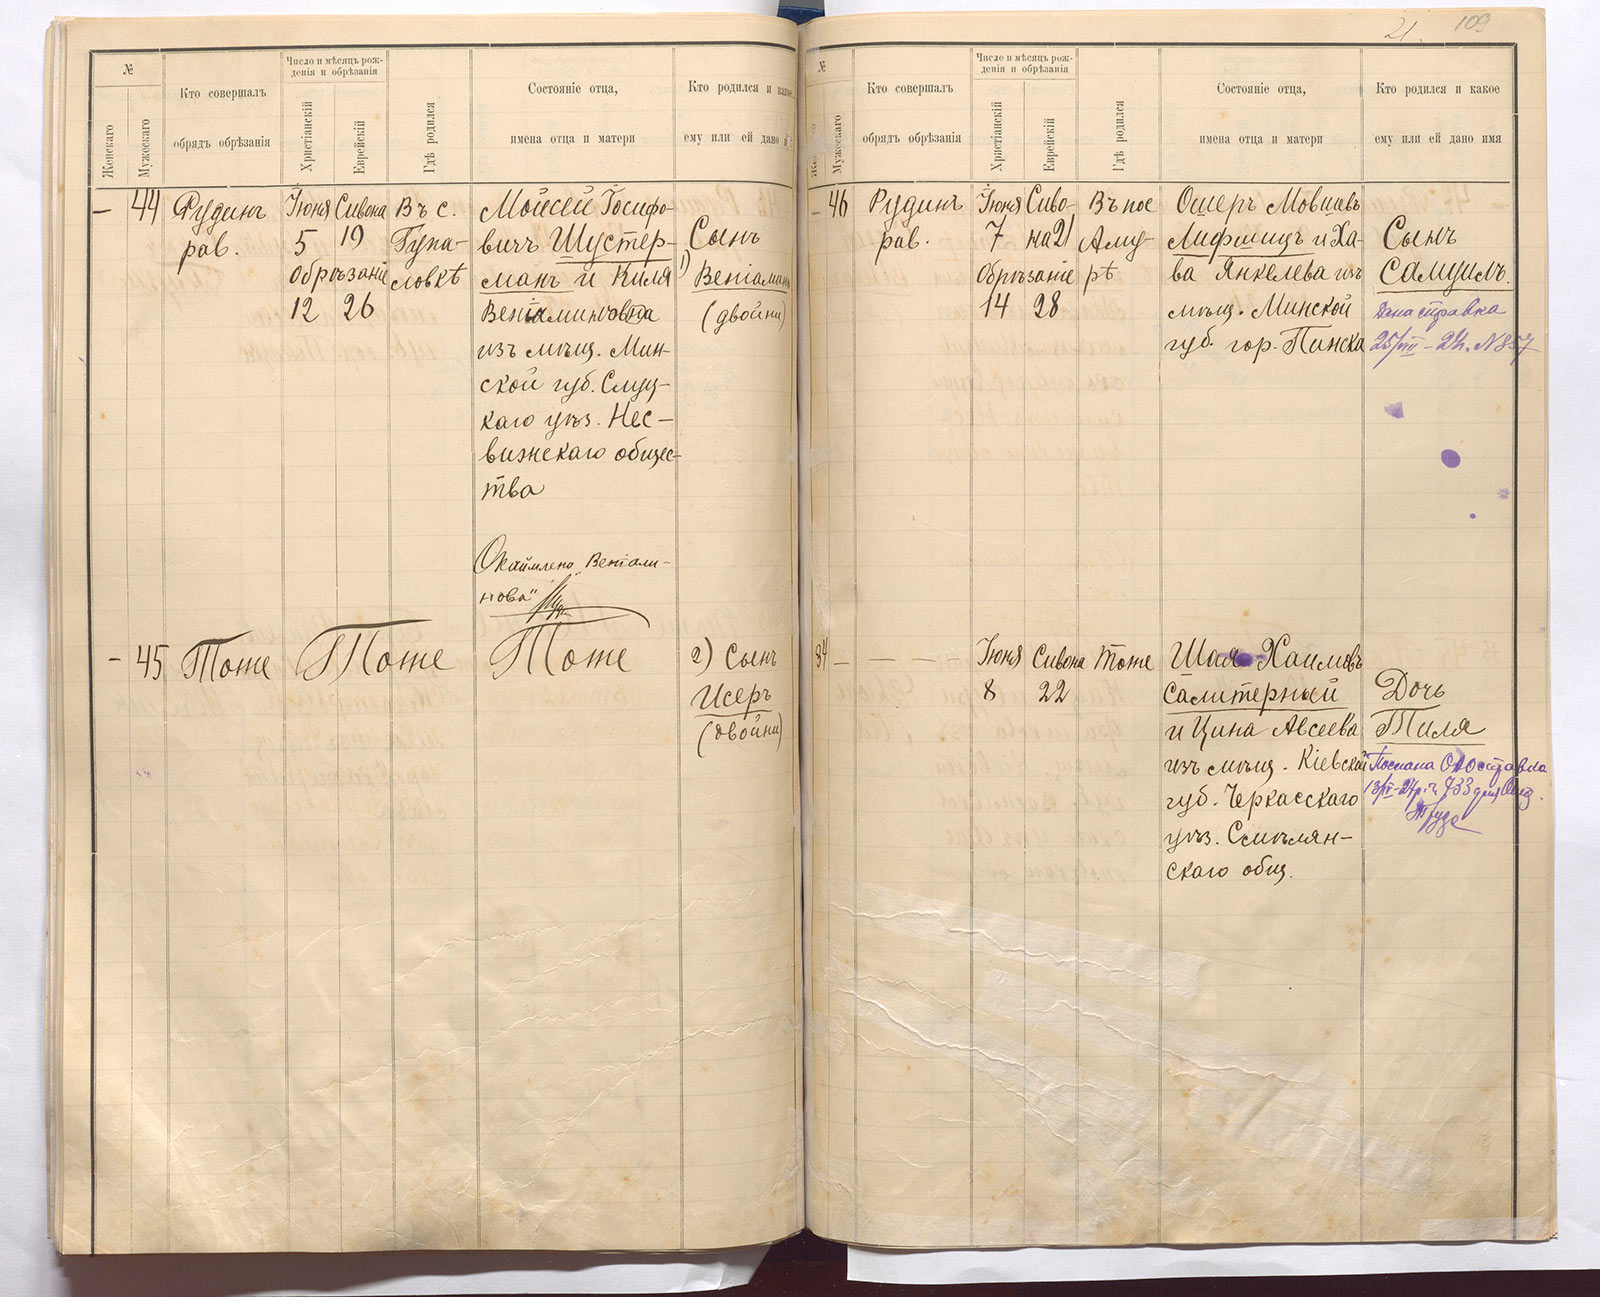 №
Женскаго
Мужескаго
Кто совершалъ
обрядъ обрѣзанія
Число и мѣсяцъ рож-
денія и обрѣзанія
Христіанскій
Еврейскій
Гдѣ родился
Состояніе отца,
имена отца и матери
Кто родился и какое
ему или ей дано и
— 44
Рудинъ
рав.
Іюня
5
Обрѣзаніе
12
Сивона
19
26
Въ с.
Гупа-
ловкѣ
Мойсей Іосифо-
вичъ Шустер-
манъ и Киля
Веніаминовна
изъ мѣщ. Мин-
ской губ. Слуц-
каго уѣз. Нес-
вижскаго общес-
тва
Окаймлено „Веніами-
нова"
1)
Сынъ
Веніаминъ
(двойни)
— 45
Тоже
Тоже
Тоже
2) Сынъ
Исеръ
(двойни)
21. 109
№
Мужескаго
Кто совершалъ
обрядъ обрѣзанія
Число и мѣсяцъ рож-
денія и обрѣзанія
Христіанскій
Еврейскій
Гдѣ родился
Состояніе отца,
имена отца и матери
Кто родился и какое
ему или ей дано имя
— 46
Рудинъ
рав.
Іюня
7
Обрѣзаніе
14
Сиво-
на 21
28
Въ пос
Аму-
рѣ
Ошеръ Мовшевъ
Лифшицъ и Ха-
ва Янкелева изъ
мѣщ. Минской
губ. гор. Пинска
Сынъ
Самуилъ.
Дана справка
25/VII – 24. N 357
34 — — — —
Іюня
8
Сивона
22
тоже
Шая Хаимовъ
Салитерный
и Цина Авсеева
изъ мѣщ. Кіевской
губ. Черкасскаго
уѣз. Смѣлян-
скаго общ.
Дочь
Тиля